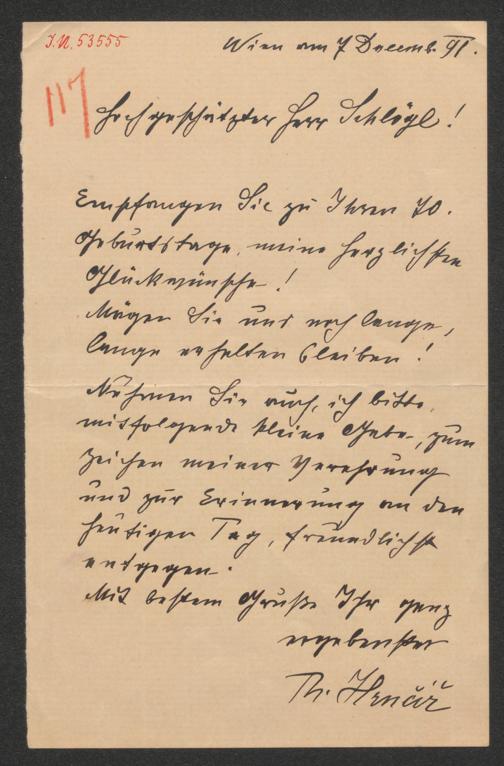 I.N. 53555
Wien am 7 Decemb. 91.
117
Hochgeschätzter Herr Schlögl!
Empfangen Sie zu Ihrem 70.
Geburtstage, meine herzlichsten
Glückwünsche!
Mögen Sie uns noch lange,
lange erhalten bleiben!
Nehmen Sie auch, ich bitte,
mitfolgende kleine Gabe, zum
Zeichen meiner Verehrung
und zur Erinnerung an den
heutigen Tag, freundlichst
entgegen.
Mit bestem Gruße Ihr ganz
ergebenster
Th.